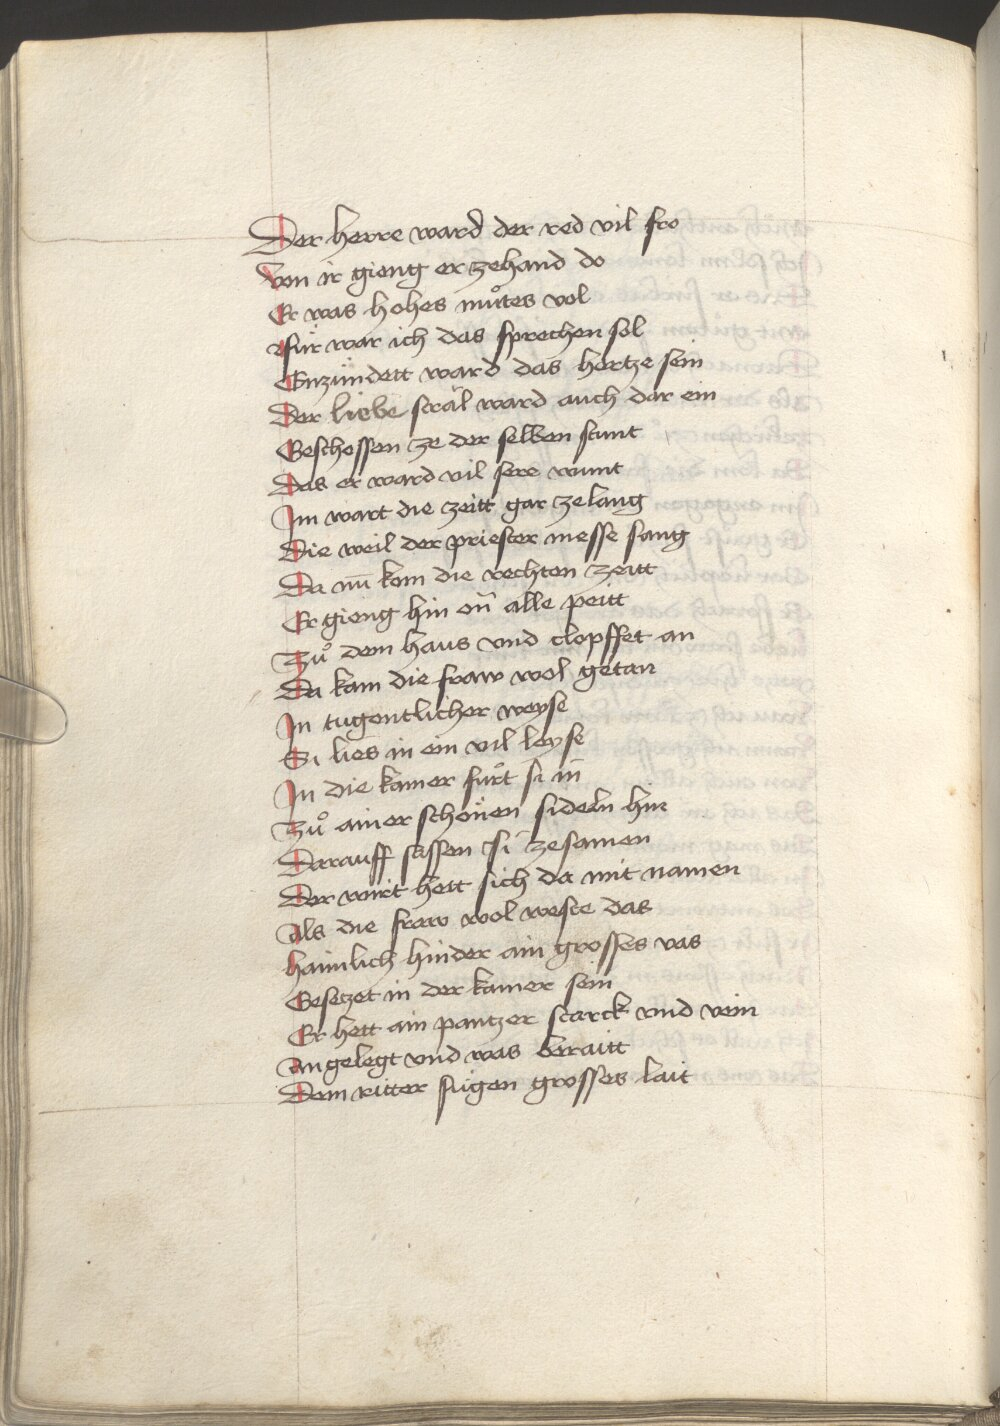 Der herre ward der red vil fro
Von ir gieng er zehand do
Er was hohes muͦtes vol
Für war ich das sprechen sol
Enzündett ward das hertze sein
Der liebe sträl ward auch dar ein
Geschossen ze der selben stunt
Das er ward vil sere wunt
Im wart die zeitt gar ze lang
Die weil der priester messe sang
Da nū kom die rechten zeitt
Er gieng hin on̄ alle peitt
Zuͦ dem haus vnd clopffet an
Da kam die fraw wol getan
In tugentlicher weyse
Si lies in ein vil leyse
In die kamer fuͦrt si in
Zuͦ ainer schönen sideln hin
Darauff sässen si zesamen
Der wirt hett sich da mit namen
Als die fraw wol weste das
haimlich hinder ain grosses vas
Gesetzet in der kamer sein
Er hett ain pantzer starck vnd vein
Angelegt vnd was beraitt
Dem ritter fügen grosses lait